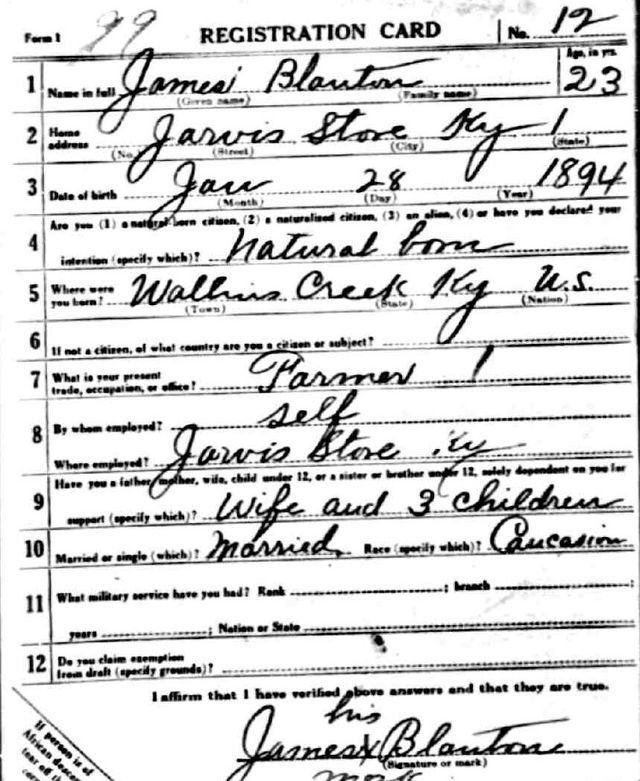 Form 1 99 REGISTRATION CARD No. 12
1 Name in full James Blanton Age, in yrs. 23
(Given name) (Family name)
2 Home address Jarvis Store Ky
(No.) (Street) (City) (State)
3 Date of birth Jan 28 1894
(Month) (Day) (Year)
Are you (1) a natural born citizen, (2) a naturalized citizen, (3) an alien, (4) or have you declared your
4 intention (specify which)? natural born
5 Where were you born? Wallins Creek Ky U.S.
(Town) (State) (Nation)
6 If not a citizen, of what country are you a citizen or subject?
7 What is your present trade, occupation, or office? Farmer
8 By whom employed? self
Where employed? Jarvis Store Ky
Have you a father, mother, wife, child under 12, or a sister or brother under 12, solely dependent on you for
9 support (specify which)? Wife and 3 children
10 Married or single (which)? Married Race (specify which)? Caucasion
11 What military service have you had? Rank ; branch ;
years ; Nation or State
12 Do you claim exemption from draft (specify grounds)?
I affirm that I have verified above answers and that they are true.
his
James X Blanton
(Signature or mark)
mark
If person is of
African
tear off